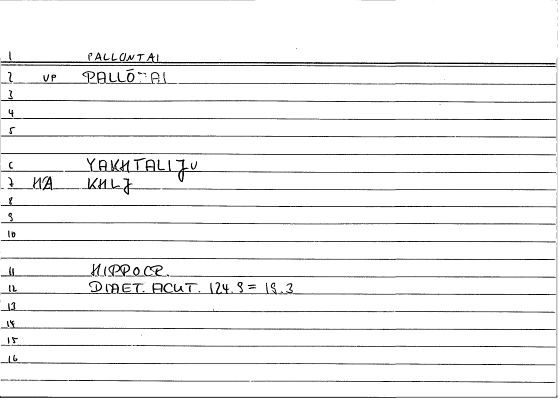 1 PALLONTAI
2 UP PALLŌTAI
3
4
5
6 YAKHTALIJU
7 HA KHLJ
8
9
10
11 HIPPOCR.
12 DIAET. ACUT. 124.9 = 19.3
13
14
15
16